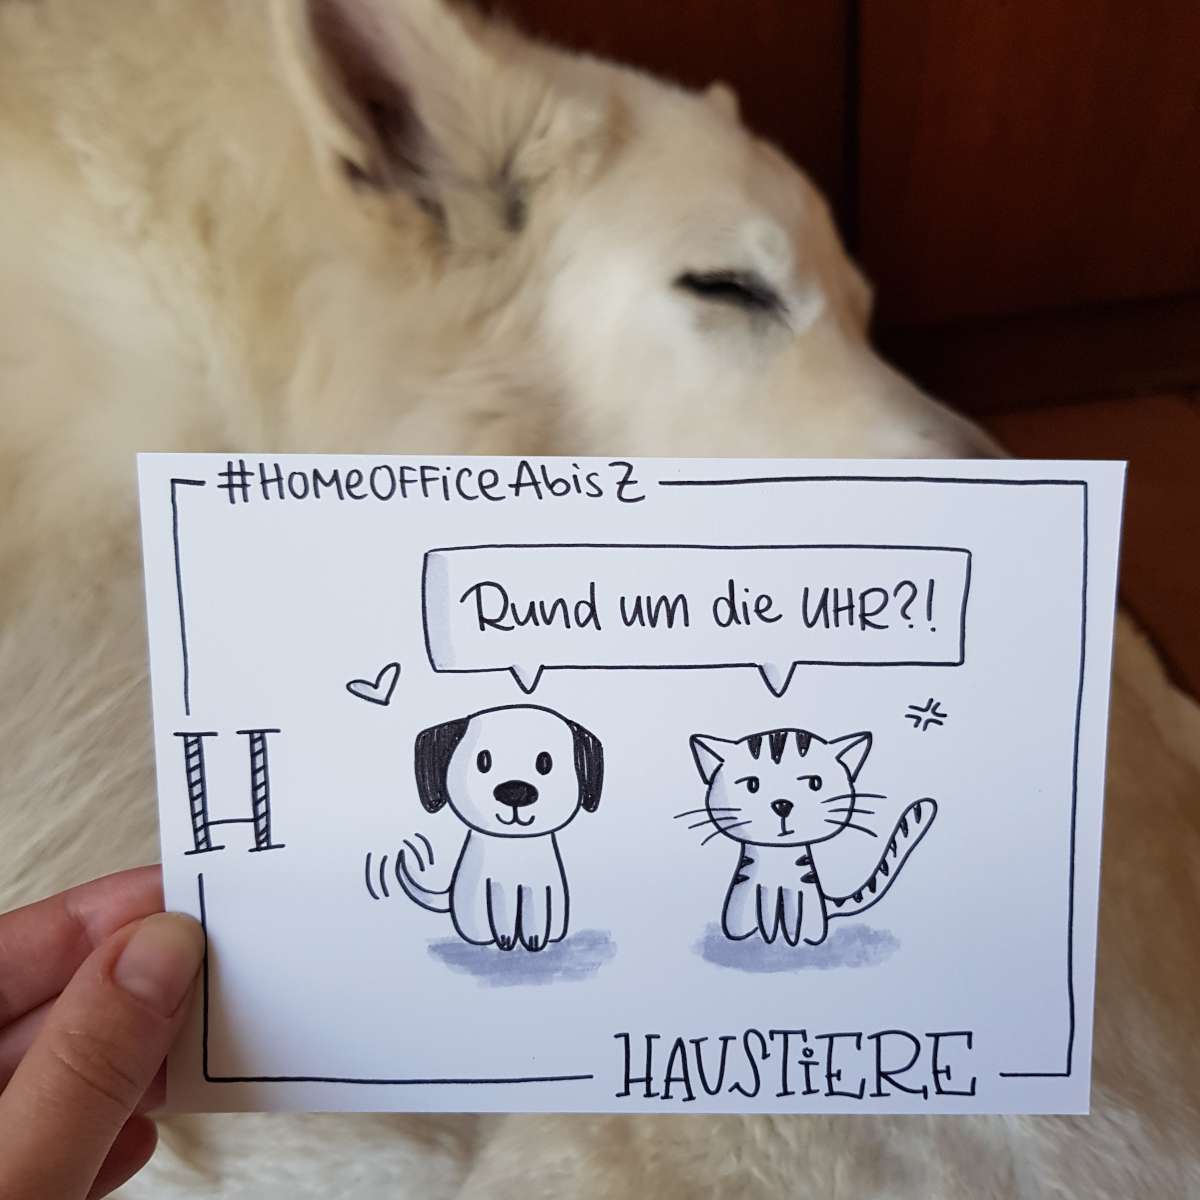 #HomeOfficeAbisZ
Rund um die UHR?!
H
HAUSTiERE